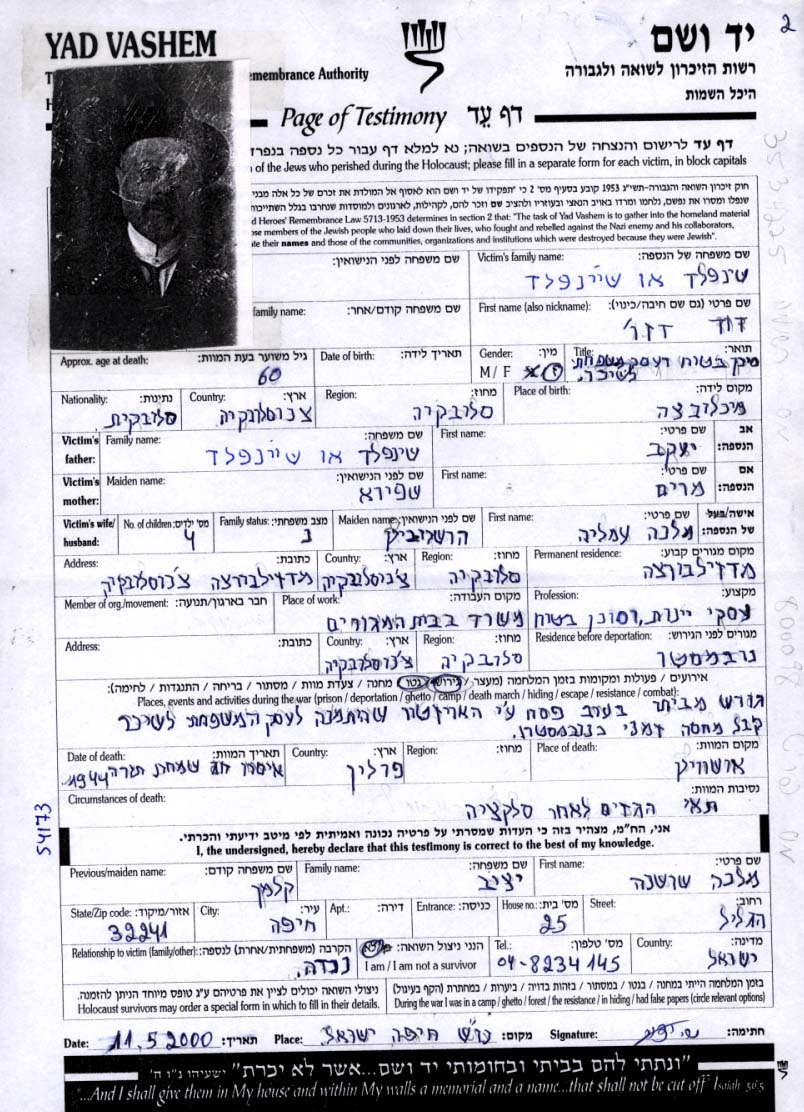 2
YAD VASHEM
יד ושם
רשות הזיכרון לשואה ולגבורה
emembrance Authority
היכל השמות
Page of Testimony דף עֵד
דף עד לרישום והנצחה של הנספים בשואה; נא למלא דף עבור כל נספה בנפרד
of the Jews who perished during the Holocaust; please fill in a separate form for each victim, in block capitals
חוק זיכרון השואה והגבורה-תשי"ג 1953 קובע בסעיף מס' 2 כי "תפקידו של יד ושם הוא לאסוף אל המולדת את זכרם של כל אלה מבני
שנפלו ומסרו את נפשם, נלחמו ומרדו באויב הנאצי ובעוזריו ולהציב שם וזכר להם, לקהילות, לארגונים ולמוסדות שנחרבו בגלל השתייכות
d Heroes' Remembrance Law 5713-1953 determines in section 2 that: "The task of Yad Vashem is to gather into the homeland material
ose members of the Jewish people who laid down their lives, who fought and rebelled against the Nazi enemy and his collaborators,
ate their names and those of the communities, organizations and institutions which were destroyed because they were Jewish".
Victim's family name: שם משפחה של הנספה:
שם משפחה לפני הנישואין:
שינפלד או שיינפלד
First name (also nickname): שם פרטי (גם שם חיבה/כינוי):
family name: שם משפחה קודם/אחר:
דוד
Title: תואר:
Gender: מין:
M / F
Date of birth: תאריך לידה:
Approx. age at death: גיל משוער בעת המוות:
60
Place of birth: מקום לידה:
Region: מחוז:
Country: ארץ:
Nationality: נתינות:
מיכלובצה
סלובקיה
צ'כוסלובקיה
סלובקית
Victim's father: אב הנספה:
First name: שם פרטי:
Family name: שם משפחה:
יעקב
שינפלד או שיינפלד
Victim's mother: אם הנספה:
First name: שם פרטי:
Maiden name: שם לפני הנישואין:
מרים
שפירא
Victim's wife/ husband: אישה/בעל של הנספה:
First name: שם פרטי:
Maiden name: שם לפני הנישואין:
Family status: מצב משפחתי:
No. of children: מס' ילדים:
מלכה עמליה
הרשקוביץ
נ
4
Permanent residence: מקום מגורים קבוע:
Region: מחוז:
Country: ארץ:
Address: כתובת:
מדזילבורצה
סלובקיה
צ'כוסלובקיה
מדזילבורצה צ'כוסלובקיה
Profession: מקצוע:
Place of work: מקום העבודה:
Member of org./movement: חבר בארגון/תנועה:
עסקי יינות, וסוכן בטוח
משרד בבית המגורים
Residence before deportation: מגורים לפני הגירוש:
Region: מחוז:
Country: ארץ:
Address: כתובת:
סלובקיה
צ'כוסלובקיה
אירועים / פעולות ומקומות בזמן המלחמה (מעצר / גירוש / גטו / מחנה / צעדת מוות / מסתור / בריחה / התנגדות / לחימה):
Places, events and activities during the war (prison / deportation / ghetto / camp / death march / hiding / escape / resistance / combat):
גורש מביתו בערב פסח ע"י האריזטור שהתמנה לעסק המשפחתי לשיכר
קבל מחסה זמני
Place of death: מקום המוות:
Region: מחוז:
Country: ארץ:
Date of death: תאריך המוות:
אושוויץ
פולין
איסרו חג שמחת תורה 1944
Circumstances of death: נסיבות המוות:
תאי הגזים לאחר סלקציה
54173
אני, הח"מ, מצהיר בזה כי העדות שמסרתי על פרטיה נכונה ואמיתית לפי מיטב ידיעתי והכרתי.
I, the undersigned, hereby declare that this testimony is correct to the best of my knowledge.
First name: שם פרטי:
Family name: שם משפחה:
Previous/maiden name: שם משפחה קודם:
מלכה שושנה
יציב
קלמן
Street: רחוב:
House no.: מס' בית:
Entrance: כניסה:
Apt.: דירה:
City: עיר:
State/Zip code: אזור/מיקוד:
הגליל
25
חיפה
32241
Country: מדינה:
Tel.: מס' טלפון:
הנני ניצול השואה:
I am / I am not a survivor
Relationship to victim (family/other): הקרבה (משפחתית/אחרת) לנספה:
ישראל
04-8234145
נכדה.
בזמן המלחמה הייתי במחנה / בגטו / במסתור / בזהות בדויה / ביערות / במחתרת (הקף בעיגול)
During the war I was in a camp / ghetto / forest / the resistance / in hiding / had false papers (circle relevant options)
ניצולי השואה יכולים לציין את פרטיהם ע"ג טופס מיוחד הניתן להזמנה.
Holocaust survivors may order a special form in which to fill in their details.
Date: 11.5.2000 תאריך: Place: חיפה ישראל מקום: Signature: חתימה:
"ונתתי להם בביתי ובחומותי יד ושם...אשר לא יכרת" ישעיהו נ"ו ה'
"...And I shall give them in My house and within My walls a memorial and a name...that shall not be cut off" Isaiah 56:5